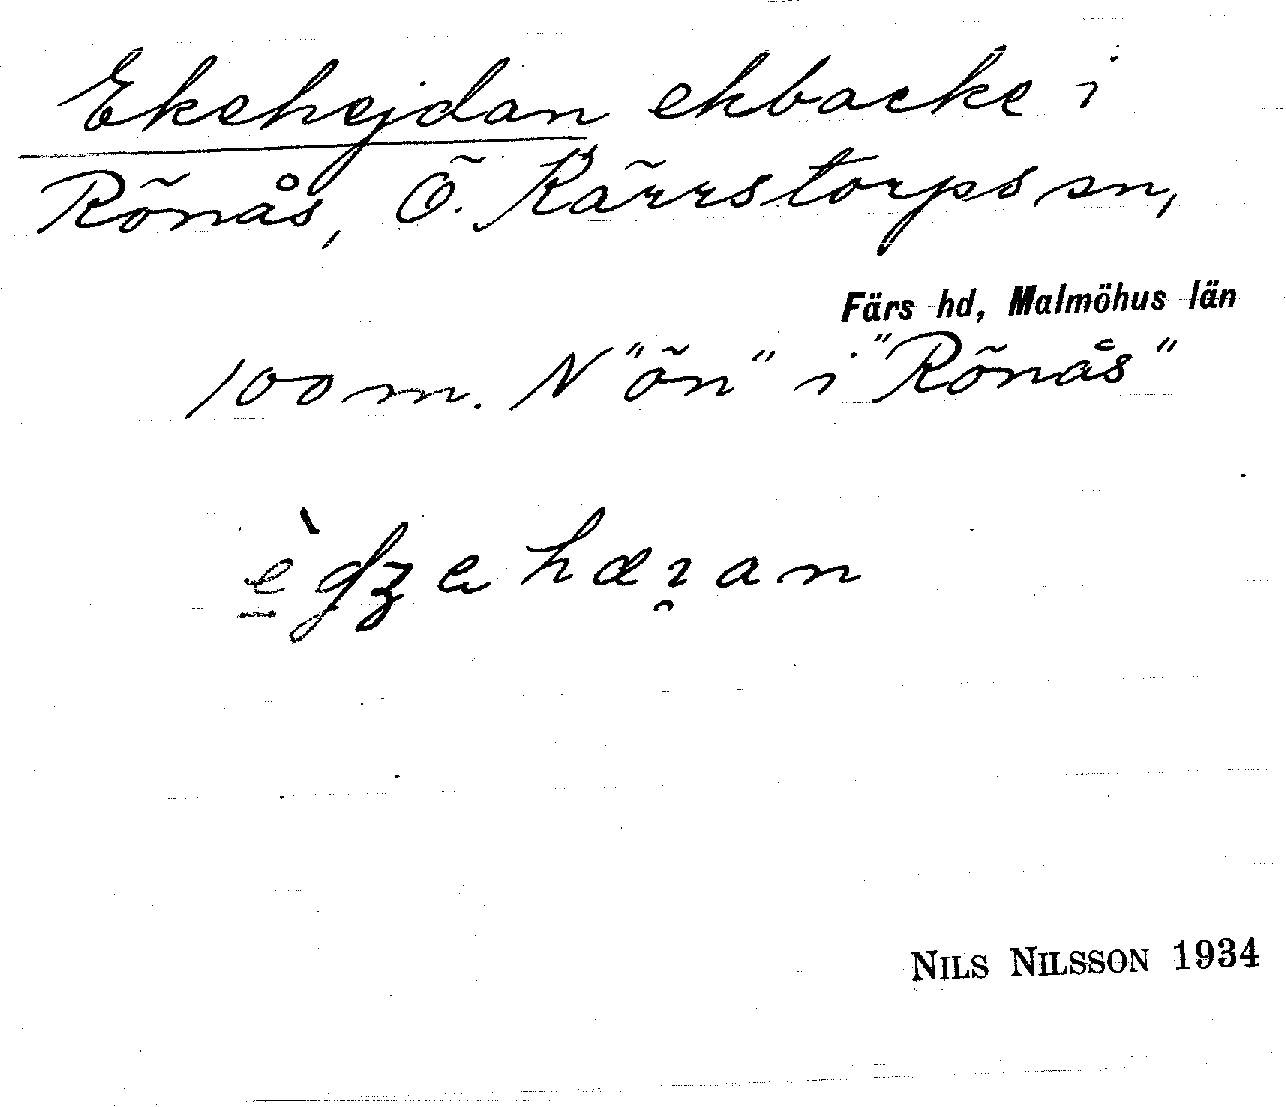 Ekehejdan ekbacke i
Rönås, Ö. Kärrstorps sn,
Färs hd, Malmöhus län
100 m. N "ön" i "Rönås"
NILS NILSSON 1934